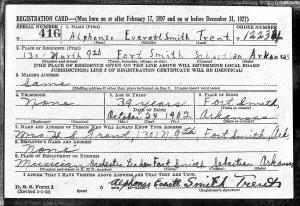 REGISTRATION CARD—(Men born on or after February 17, 1897 and on or before December 31, 1921)
SERIAL NUMBER 1. NAME (Print) ORDER NUMBER
416 Alphonso Everett Smith Trent 12234
2. PLACE OF RESIDENCE (Print)
1301 North 9th Fort Smith Sebastian Arkansas
[THE PLACE OF RESIDENCE GIVEN ON THE LINE ABOVE WILL DETERMINE LOCAL BOARD
JURISDICTION; LINE 2 OF REGISTRATION CERTIFICATE WILL BE IDENTICAL]
3. MAILING ADDRESS
Same
4. TELEPHONE 5. AGE IN YEARS 6. PLACE OF BIRTH
None 39 years Fort Smith
October 24 1902 Arkansas
7. NAME AND ADDRESS OF PERSON WHO WILL ALWAYS KNOW YOUR ADDRESS
Trent, 1301 N 9th Fort Smith Ark
8. EMPLOYER'S NAME AND ADDRESS
None
9. PLACE OF EMPLOYMENT OR BUSINESS
Fort Smith Sebastian Arkansas
I AFFIRM THAT I HAVE VERIFIED ABOVE ANSWERS AND THAT THEY ARE TRUE.
D. S. S. Form 1
Alphonso Everett Smith Trent